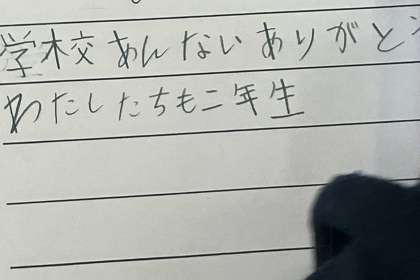 学校あんないありがとう
わたしたちも二年生